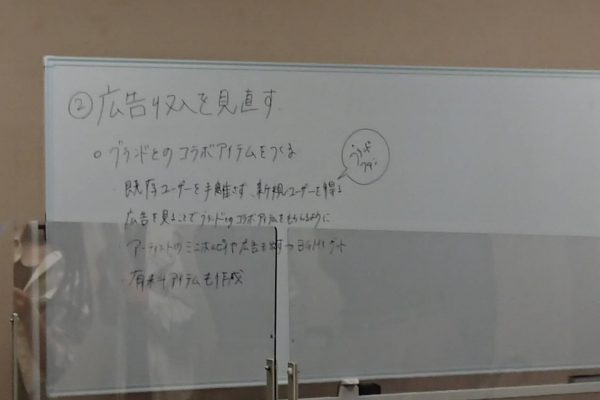 ② 広告収入を見直す
○ ブランドとのコラボアイテムをつくる
・既存ユーザーを手離さず、新規ユーザーを得る
広告を見ることでブランドとのコラボアイテムをもらえるように
・アーティストのミニ や広告を出す→
・有料アイテムも作成